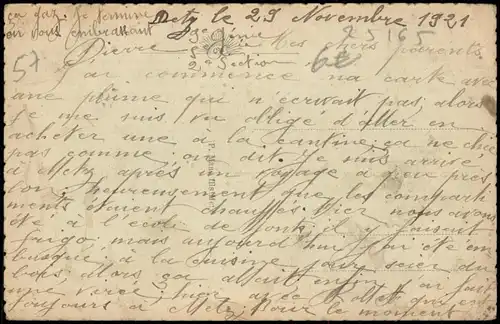 ça gaz. Je termine
en vous embrassant
Pierre
Metz le 29 Novembre 1921
9e Génie
2e Section
25165
57
Mes chers parents
J'ai commencé ma carte avec
une plume qui n'écrivait pas, alors
je me suis vu obligé d'aller en
acheter une à la cantine, ça ne
pas comme on dit. Je suis arrivé
à Metz après un voyage à peu près
bon, heureusement que les comparti
ments étaient chauffés. Hier nous avons
été à l'école de ponts, il y faisait
frigo, mais aujourd'hui j'ai été em
busqué à la cuisine pour scier du
bois, alors ça allait enfin j'ai fait
une virée hier avec qui est
toujours à Metz, pour le moment